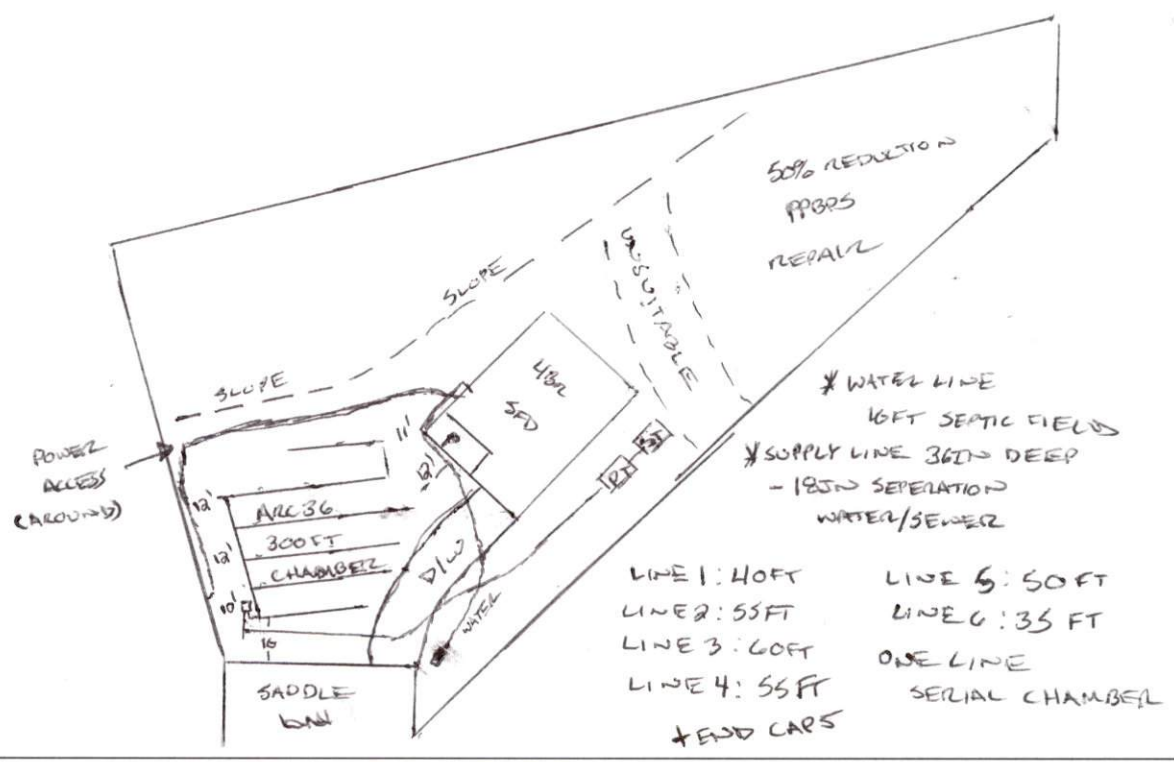 50% REDUCTION
PPBPS
REPAIR
UNSUITABLE
SLOPE
SLOPE
4BR
SFD
POWER
ACCESS
(AROUND)
11'
12'
12'
12'
10'
16
ARC36
300FT
CHAMBER
D/W
WATER
PT
ST
SADDLE
* WATER LINE
10FT SEPTIC FIELD
* SUPPLY LINE 36IN DEEP
- 18IN SEPERATION
WATER/SEWER
LINE 1: 40FT
LINE 2: 55FT
LINE 3: 60FT
LINE 4: 55FT
+ END CAPS
LINE 5: 50FT
LINE 6: 35 FT
ONE LINE
SERIAL CHAMBER